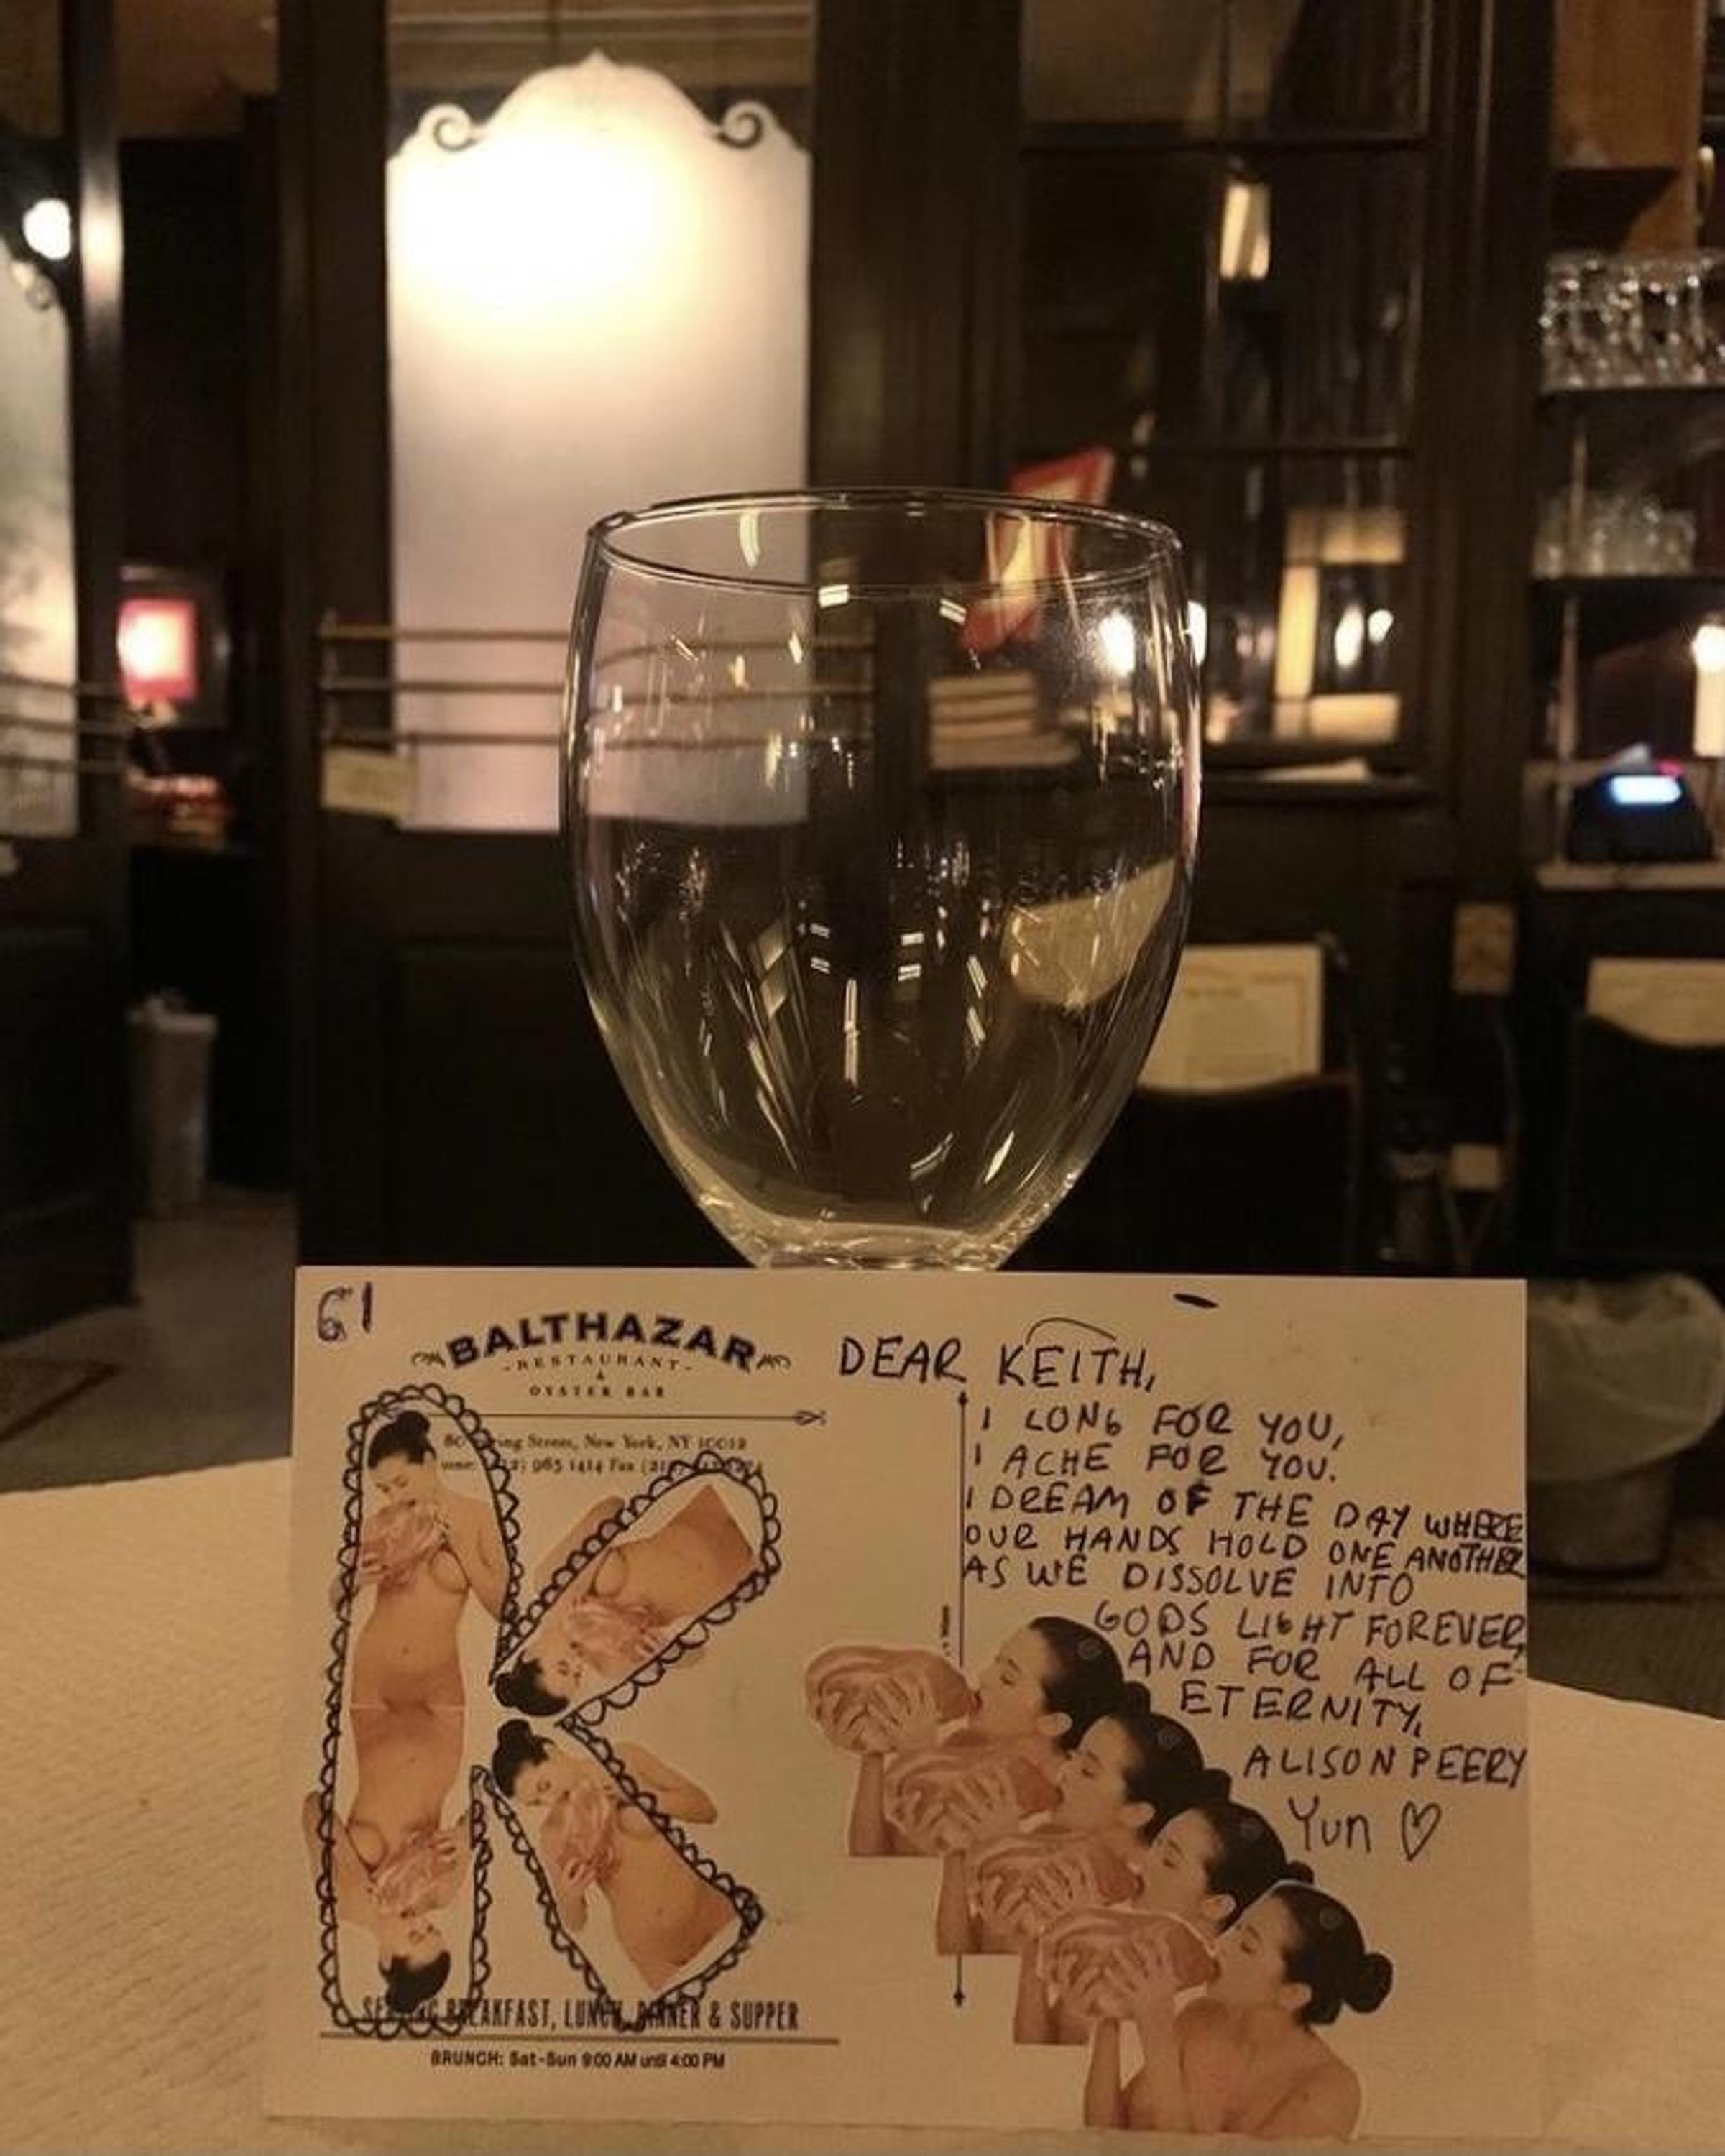 61
BALTHAZAR
-RESTAURANT-
&
OYSTER BAR
New York, NY 10012
985 1414 Fax
BREAKFAST, LUNCH, DINNER & SUPPER
BRUNCH: Sat-Sun 9:00 AM until 4:00 PM
DEAR KEITH,
I LONG FOR YOU,
I ACHE FOR YOU.
I DREAM OF THE DAY WHERE
OUR HANDS HOLD ONE ANOTHER
AS WE DISSOLVE INTO
GODS LIGHT FOREVER
AND FOR ALL OF
ETERNITY,
ALISON PEERY
Yun ♡